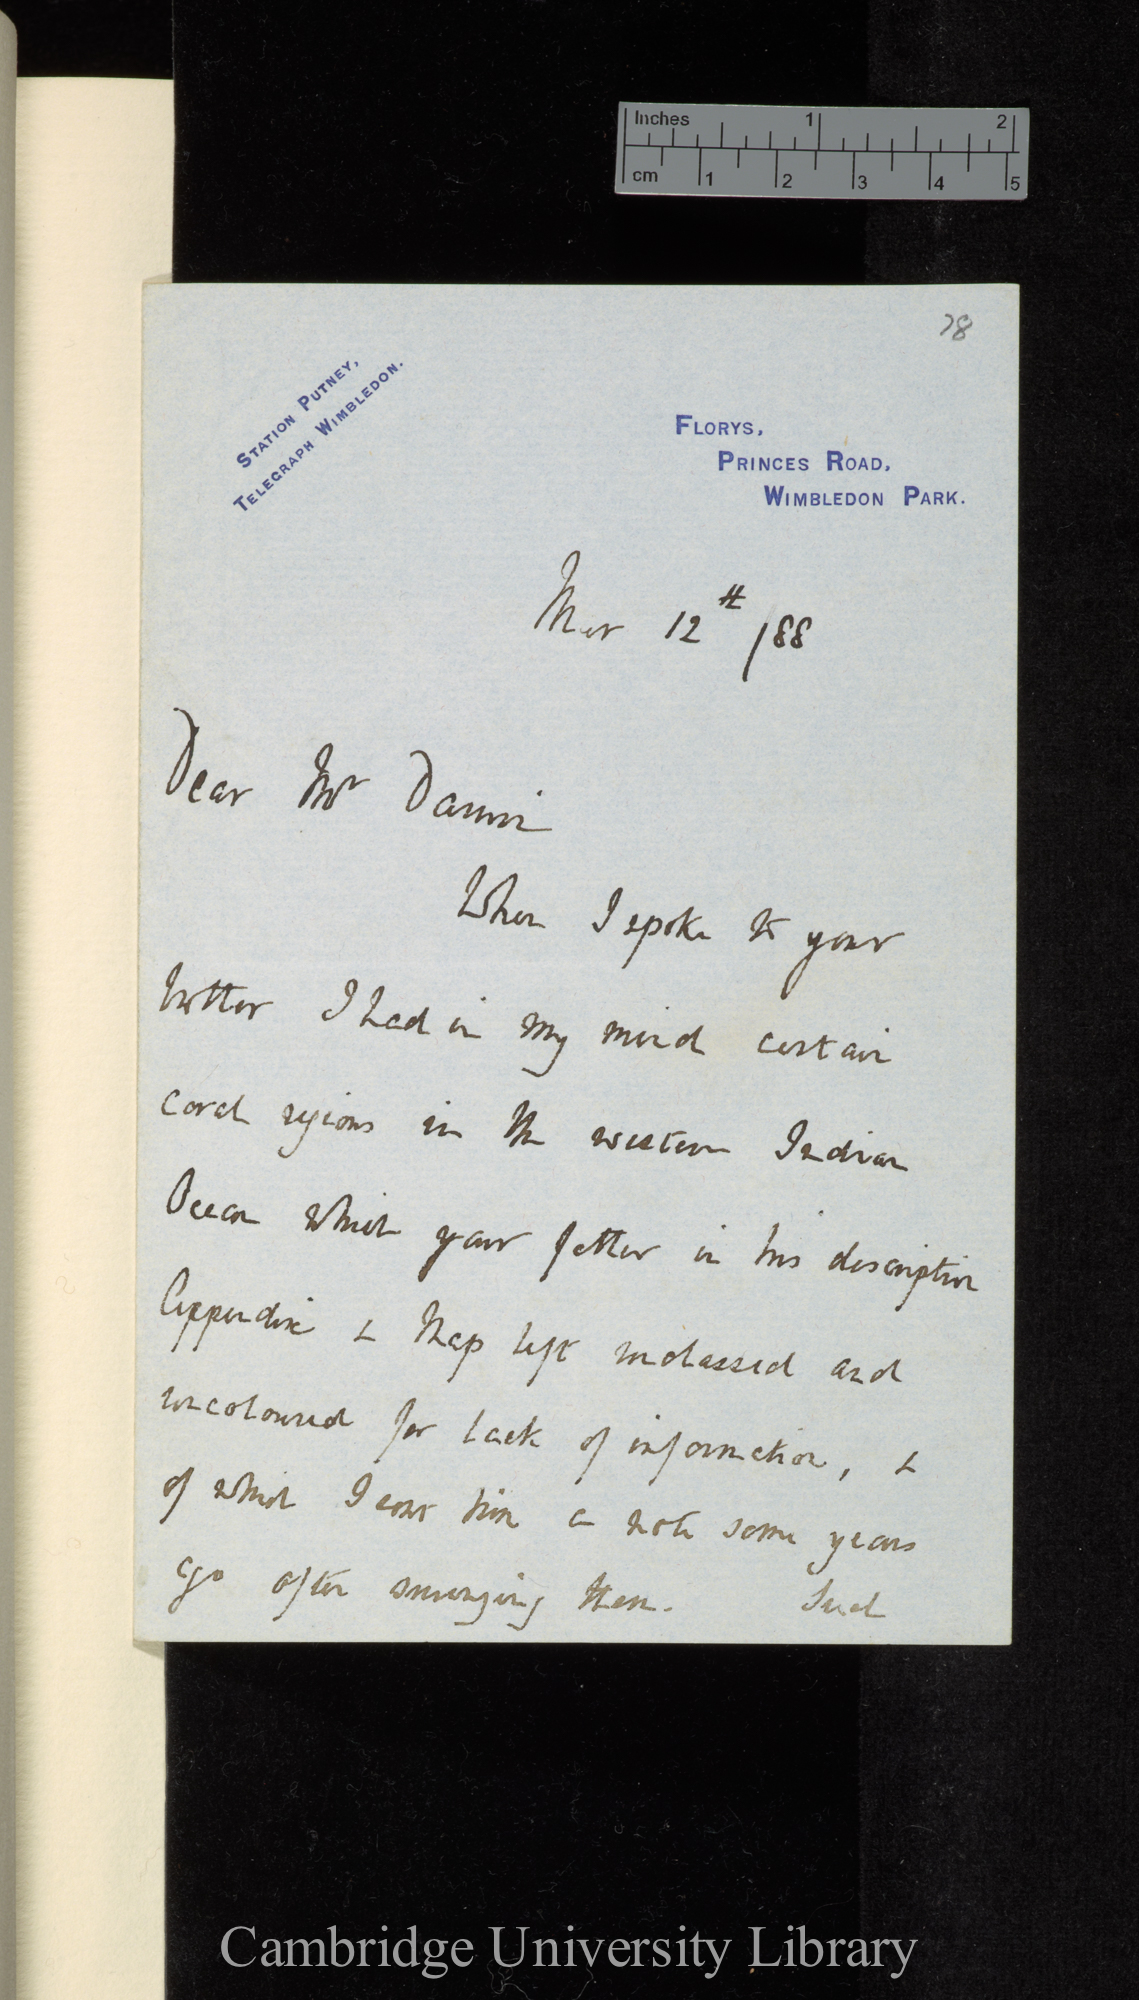 Inches 1 2
cm 1 2 3 4 5
78
Station Putney,
Telegraph Wimbledon.
Florys,
Princes Road,
Wimbledon Park.
Mar 12th /88
Dear Mr Darwin
When I spoke to your
brother I had in my mind certain
coral regions in the western Indian
Ocean which your father in his descriptive
Appendix & Map left unclassed and
uncoloured for lack of information, &
of which I sent him a note some years
ago after surveying them. Such
Cambridge University Library